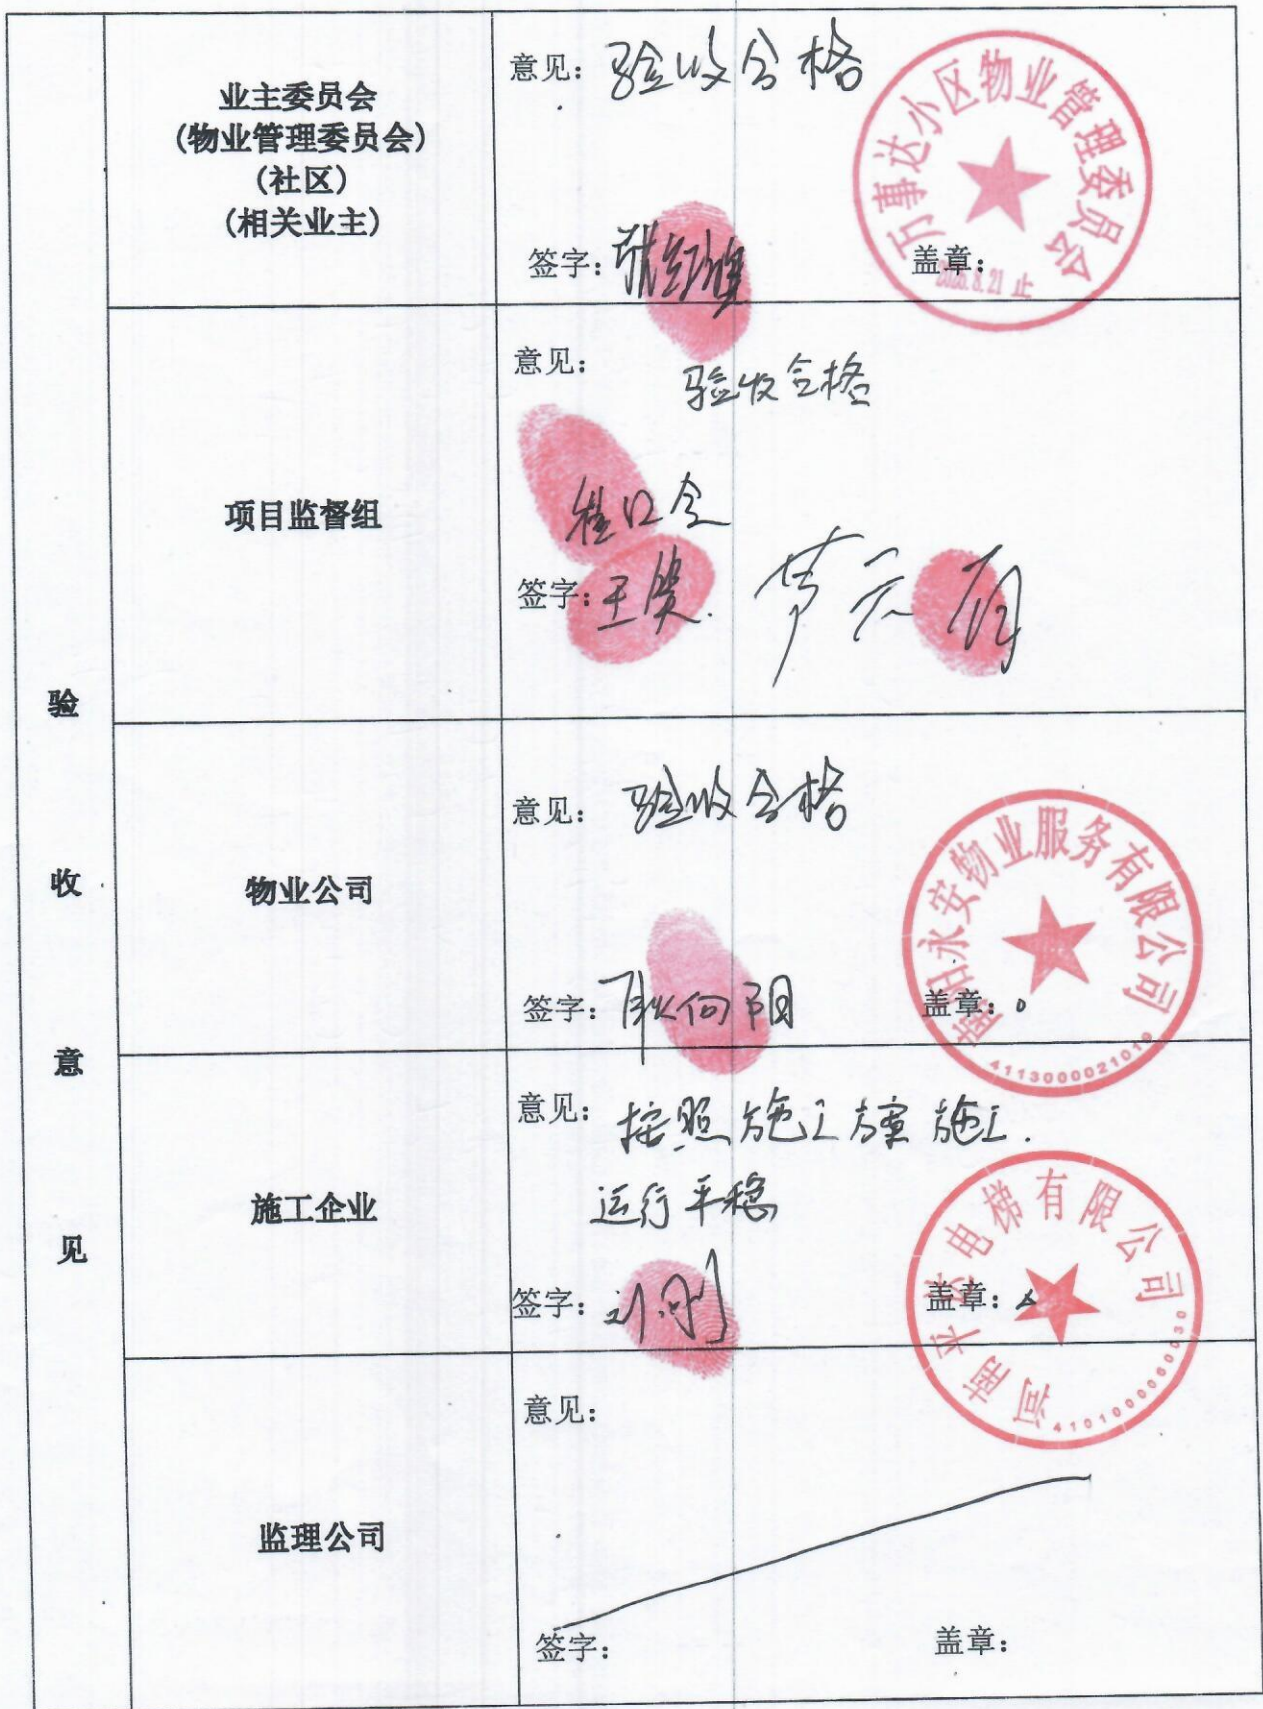 验收意见
业主委员会
(物业管理委员会)
(社区)
(相关业主)
意见：验收合格
签字：
盖章：
万事达小区物业管理委员会
8.21 止
项目监督组
意见：
验收合格
签字：王笑.
物业公司
意见：验收合格
签字：耿向阳
盖章：
南阳永安物业服务有限公司
4113000021019
施工企业
意见：按照施工方案施工.
运行平稳
签字：刘刚
盖章：
河南平达电梯有限公司
监理公司
意见：
签字：
盖章：